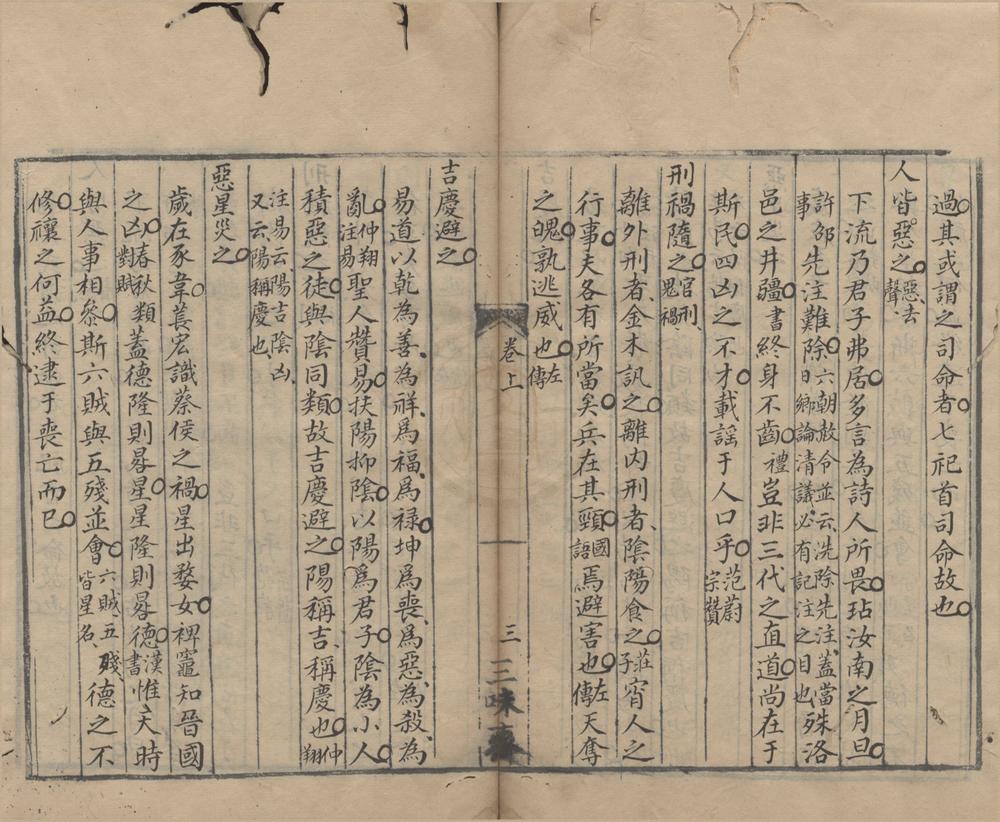 過其或謂之司命者七祀首司命故也
人皆惡之惡去聲
下流乃君子弗居多言為詩人所畏玷汝南之月旦
許邵先注難除六朝赦令並云洗除先注蓋當日鄉論清議必有記注之目也殊洛
事
邑之井疆書終身不齒禮豈非三代之直道尚在于
斯民四凶之不才載謡于人口乎范蔚宗贊
刑禍隨之官刑鬼禍
離外刑者金木訊之離内刑者陰陽食之莊子宵人之
行事夫各有所當矣兵在其頸國語焉避害也左傳天奪
之魄孰逃威也左傳
卷上
三
三味齋
吉慶避之
易道以乾為善為祥為福為禄坤為喪為惡為殺為
亂仲翔注易聖人贊易扶陽抑陰以陽為君子陰為小人
積惡之徒與陰同類故吉慶避之陽稱吉稱慶也仲翔
注易云陽吉陰凶
又云陽稱慶也
惡星災之
歲在豕韋萇宏識蔡侯之禍星出婺女裨竈知晉國
之凶春秋對賦類蓋德隆則晷星星隆則晷德漢書惟天時
與人事相參斯六賊與五殘並會六賊五殘皆星名德之不
修禳之何益終逮于喪亡而已